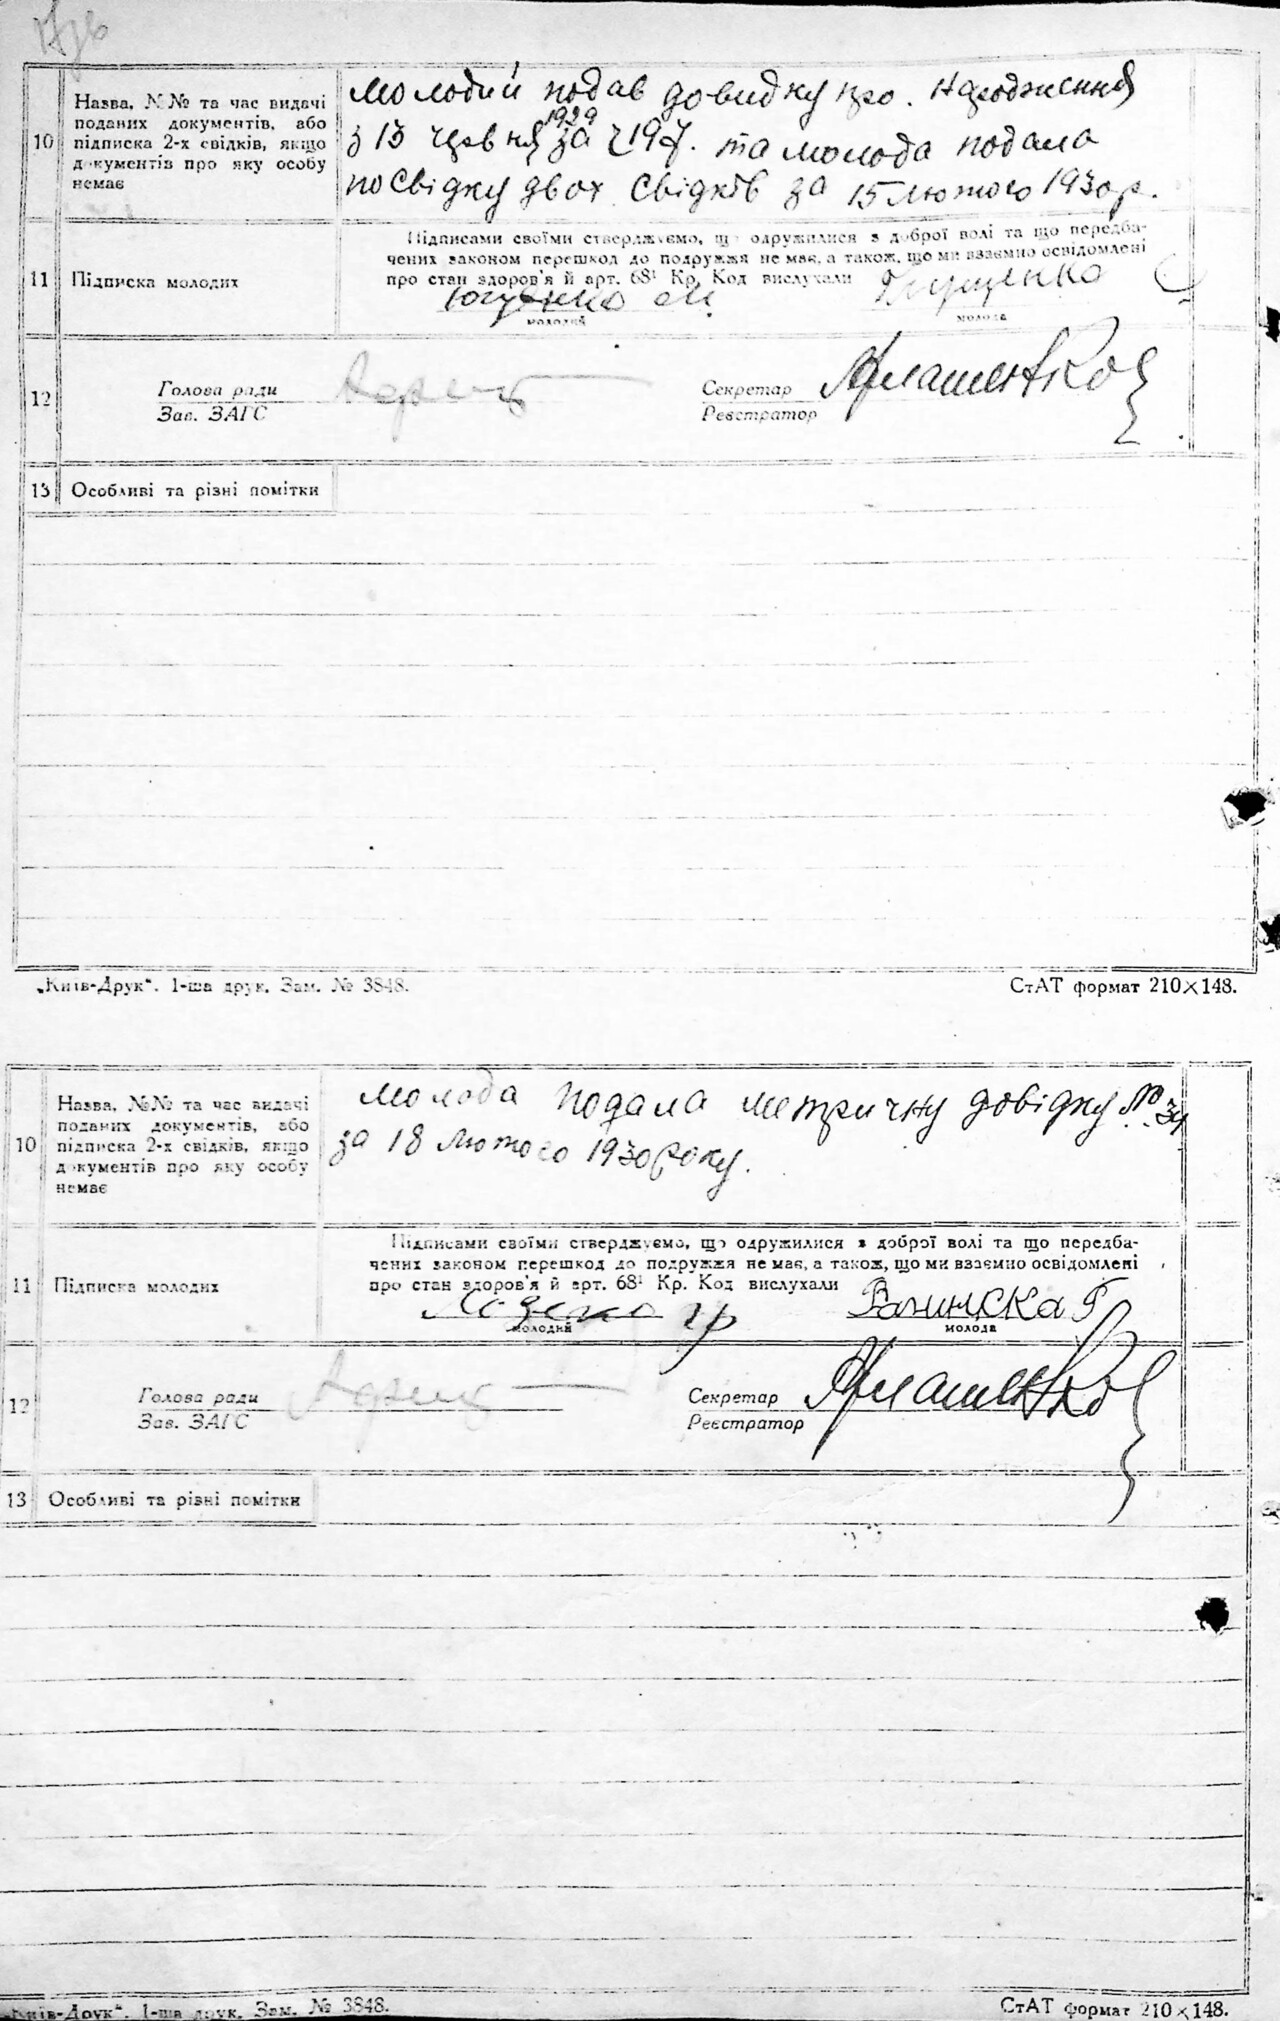 10
Назва, №№ та час видачі
поданих документів, або
підписка 2-х свідків, якщо
документів про яку особу
немає
Молодий подав довидку про. народження
з 13 червня 1929 за
та молода подала
посвідку двох свідків за 15 лютого 1930р.
11
Підписка молодих
Підписами своїми стверджуємо, що одружилися з доброї волі та що передба-
чених законом перешкод до подружжя немає, а також, що ми взаємно освідомлені
про стан здоров'я й арт. 68¹ Кр. Код вислухали
молодий
молода
12
Голова ради
Зав. ЗАГС
Секретар
Реєстратор
13
Особливі та різні помітки
„Київ-Друк“. 1-ша друк. Зам. № 3848.
СтАТ формат 210×148.
10
Назва, №№ та час видачі
поданих документів, або
підписка 2-х свідків, якщо
документів про яку особу
немає
Молода подала метричну довідку №
за 18 лютого 1930 року.
11
Підписка молодих
Підписами своїми стверджуємо, що одружилися з доброї волі та що передба-
чених законом перешкод до подружжя немає, а також, що ми взаємно освідомлені
про стан здоров'я й арт. 68¹ Кр. Код вислухали
молодий
молода
12
Голова ради
Зав. ЗАГС
Секретар
Реєстратор
13
Особливі та різні помітки
„Київ-Друк“. 1-ша друк. Зам. № 3848.
СтАТ формат 210×148.